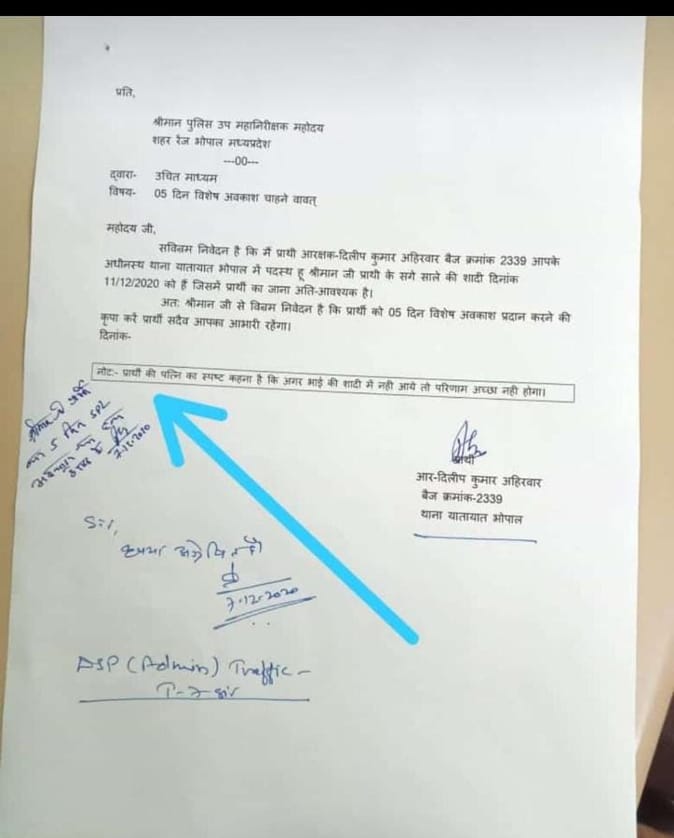 प्रति,
श्रीमान पुलिस उप महानिरीक्षक महोदय
शहर रेंज भोपाल मध्यप्रदेश
---00---
द्वारा- उचित माध्यम
विषय- 05 दिन विशेष अवकाश चाहने वावत्
महोदय जी,
सविन्रम निवेदन है कि मैं प्रार्थी आरक्षक-दिलीप कुमार अहिरवार बैज क्रमांक 2339 आपके
अधीनस्थ थाना यातायात भोपाल में पदस्थ हू श्रीमान जी प्रार्थी के सगे साले की शादी दिनांक
11/12/2020 को हैं जिसमें प्रार्थी का जाना अति-आवश्यक है।
अतः श्रीमान जी से विन्रम निवेदन है कि प्रार्थी को 05 दिन विशेष अवकाश प्रदान करने की
कृपा करें प्रार्थी सदैव आपका आभारी रहेगा।
दिनांक-
नोटः- प्रार्थी की पत्नि का स्पष्ट कहना है कि अगर भाई की शादी में नही आये तो परिणाम अच्छा नही होगा।
श्रीमान
5 दिन SPL
7-12-2020
प्रार्थी
आर-दिलीप कुमार अहिरवार
बैज क्रमांक-2339
थाना यातायात भोपाल
Sir,
7-12-2020
ASP (Admin) Traffic-